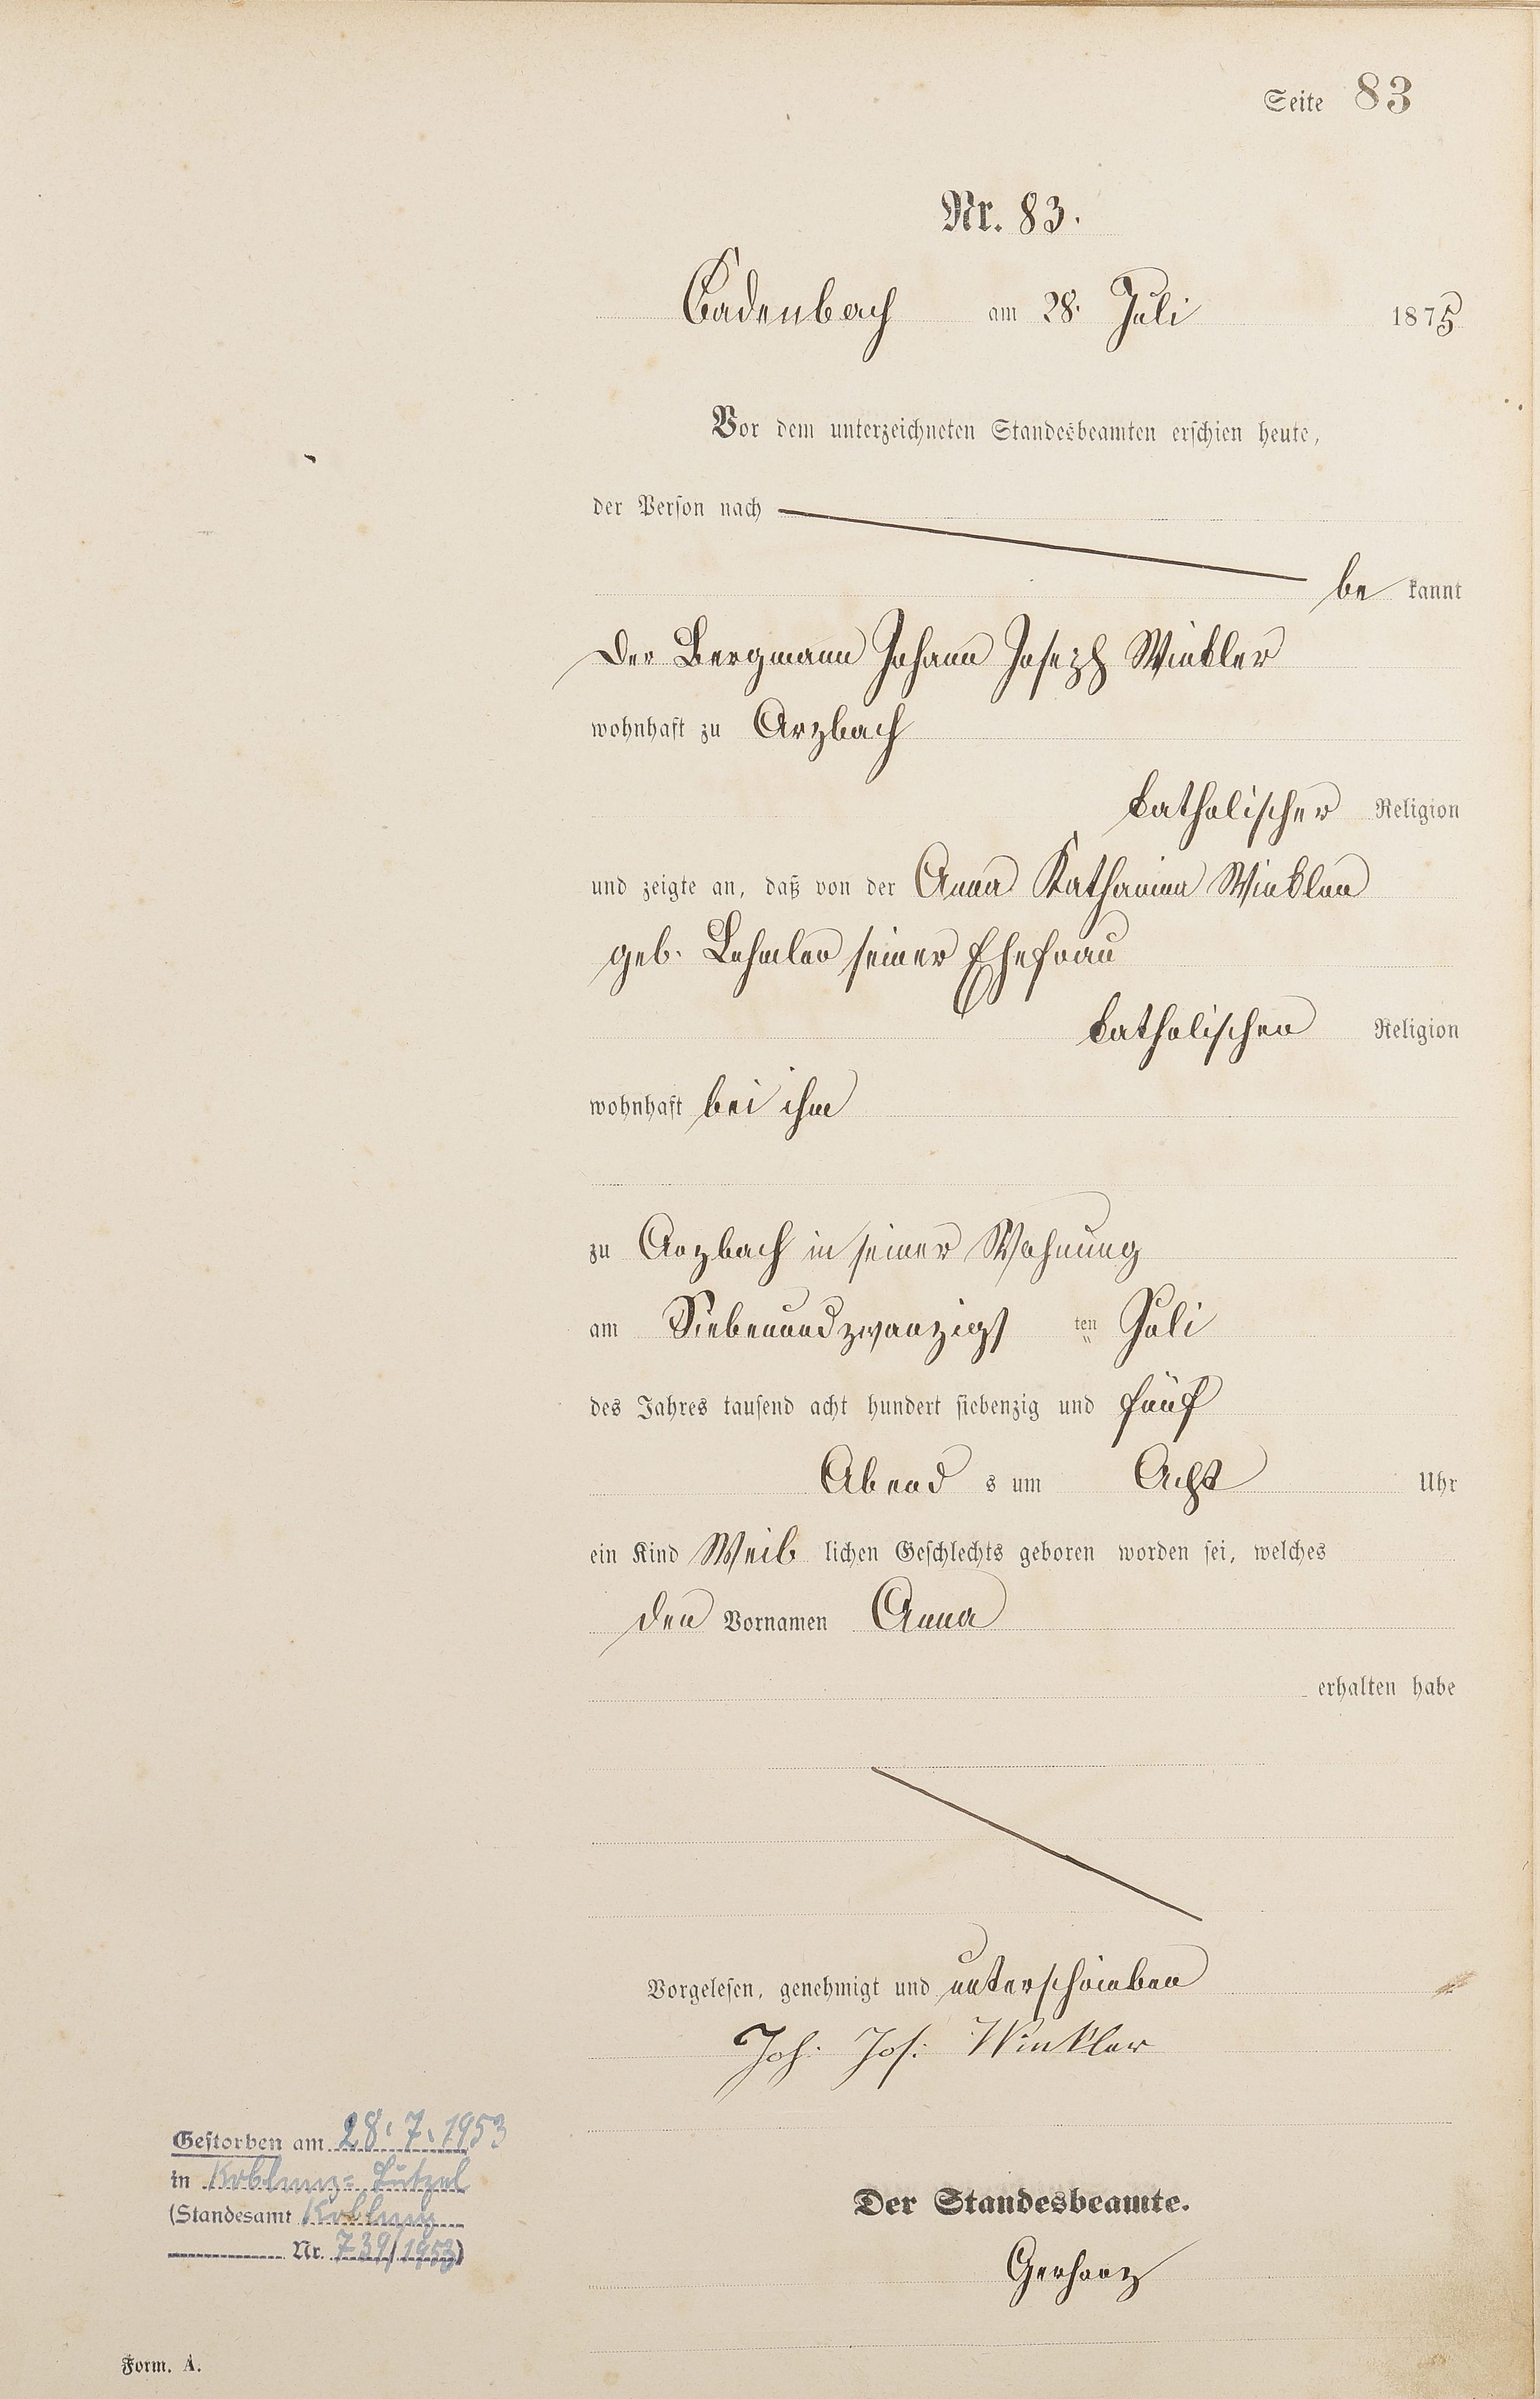 Seite 83
Nr. 83.
Cadenbach am 28. Juli 1875
Vor dem unterzeichneten Standesbeamten erschien heute,
der Person nach
be kannt
der Bergmann Johann Joseph Winkler
wohnhaft zu Arzbach
katholischer Religion
und zeigte an, daß von der Anna Katharina Winkler
geb. Lehmler seiner Ehefrau
katholischer Religion
wohnhaft bei ihm
zu Arzbach in seiner Wohnung
am Siebenundzwanzigs ten Juli
des Jahres tausend acht hundert siebenzig und fünf
Abend s um Acht Uhr
ein Kind Weib lichen Geschlechts geboren worden sei, welches
den Vornamen Anna
erhalten habe
Vorgelesen, genehmigt und unterschrieben
Joh. Jos. Winkler
Gestorben am 28.7.1953
in Koblenz-Lützel
(Standesamt Koblenz
Nr. 739/1953)
Der Standesbeamte.
Gerharz
Form. A.